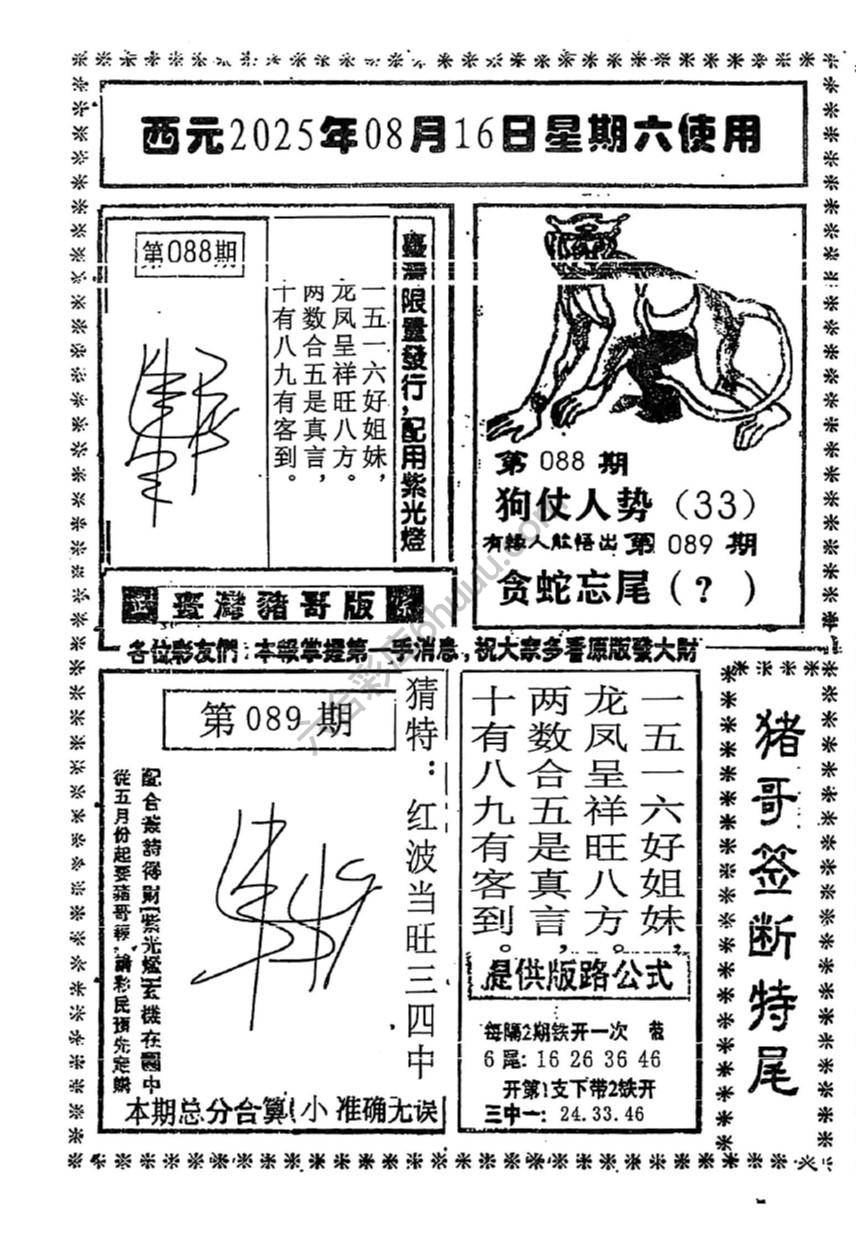 西元2025年08月16日星期六使用
第088期
一五一六好姐妹，
龙凤呈祥旺八方。
两数合五是真言，
十有八九有客到。
臺灣限量發行，配用紫光燈
正 臺灣豬哥版 系
第 088 期
狗仗人势（33）
有緣人能悟出 第 089 期
贪蛇忘尾（？）
各位彩友們：本報掌握第一手消息，祝大家多看原版發大財
第 089 期
猜特：红波当旺三四中
從五月份起要豬哥報，請彩民預先定購
本期总分合算(小 准确无误
一五一六好姐妹，
龙凤呈祥旺八方。
两数合五是真言，
十有八九有客到。
提供版路公式
每隔2期铁开一次
6尾：16 26 36 46
开第1支下带2铁开
三中一：24.33.46
猪哥签断特尾